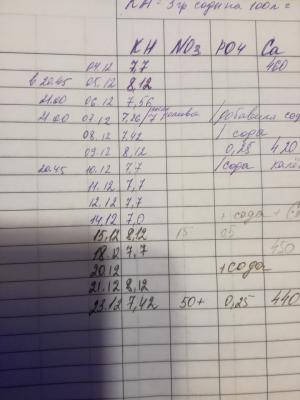 KH = 3 гр соды на 100 л =
KH NO3 PO4 Ca
04.12 7,7 460
в 20.45 05.12 8,12
21.00 06.12 7,56
21.00 07.12 7,28 / полива / добавила сод
08.12 7,42 / сода
09.12 8,12 0,25 420
20.45 10.12 7,7 / сода
11.12 7,7
12.12 7,7
14.12 7,0 + сода +
15.12 8,12 15 05
18.12 7,7 430
20.12 + сода
21.12 8,12
23.12 7,42 50+ 0,25 440